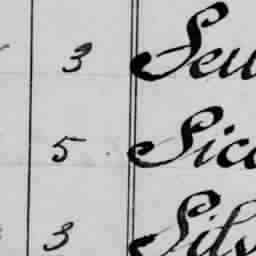 3 Seu
5 Sica
3 Silv